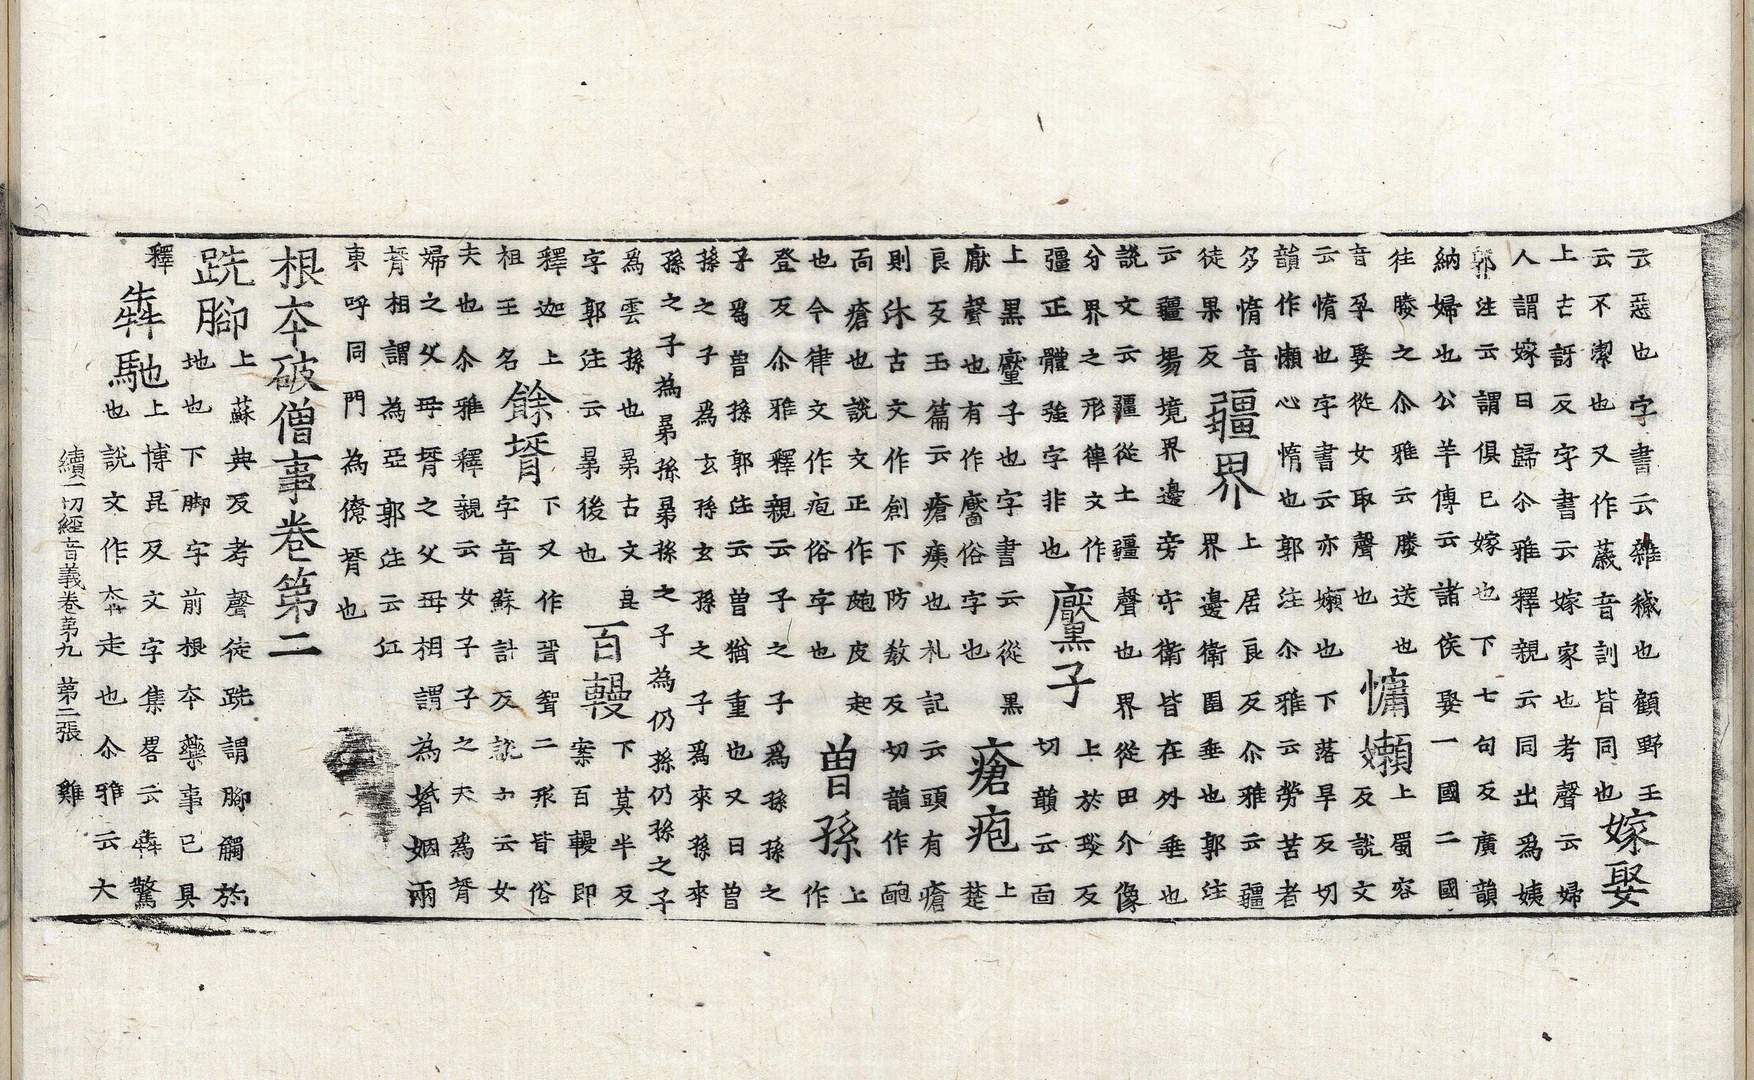 云惡也字書云雜穢也顧野王
云不潔也又作薉音訓皆同也
嫁娶
上古訝反字書云嫁家也考聲云婦
人謂嫁曰歸尒雅釋親云同出爲姨
郭注云謂俱已嫁也下七句反廣韻
納婦也公羊傳云諸侯娶一國二國
往媵之尒雅云媵送也
音孕娶從女取聲也
慵嬾
上蜀容
反說文
云惰也字書云亦嬾也下落旱反切
韻作懶心惰也郭注尒雅云勞苦者
多惰音
徒果反
疆界
上居良反尒雅云疆
界邊衛圉垂也郭注
云疆場境界邊旁守衛皆在外垂也
說文云疆從土彊聲也界從田介像
分界之形律文作
彊正體強字非也
黶子
上於琰反
切韻云面
上黑黶子也字書云從黑
厭聲也有作靨俗字也
瘡疱
上
楚
良反玉篇云瘡痍也札記云頭有瘡
則沐古文作創下防教反切韻作皰
面瘡也說文正作皰皮起
也今律文作疱俗字也
曽孫
上
作
登反尒雅釋親云子之子爲孫孫之
子爲曽孫郭注云曽猶重也又曰曽
孫之子爲玄孫玄孫之子爲來孫來
孫之子為晜孫晜孫之子為仍孫仍孫之子
爲雲孫也晜古文昆
字郭注云晜後也
百鞔
下莫半反
案百鞔即
釋迦上
祖王名
餘壻
下又作聟二形皆俗
字音蘇計反說文云女
夫也尒雅釋親云女子子之夫爲壻
婦之父母壻之父母相謂為婚姻兩
壻相謂為亞郭注云江
東呼同門為僚壻也
根本破僧事卷第二
跣腳
上蘇典反考聲徒跣謂腳觸於
地也下脚字前根本藥事已具
釋
犇馳
上博昆反文字集畧云犇驚
也說文作奔走也尒雅云大
續一切經音義卷第九 第二張 雞